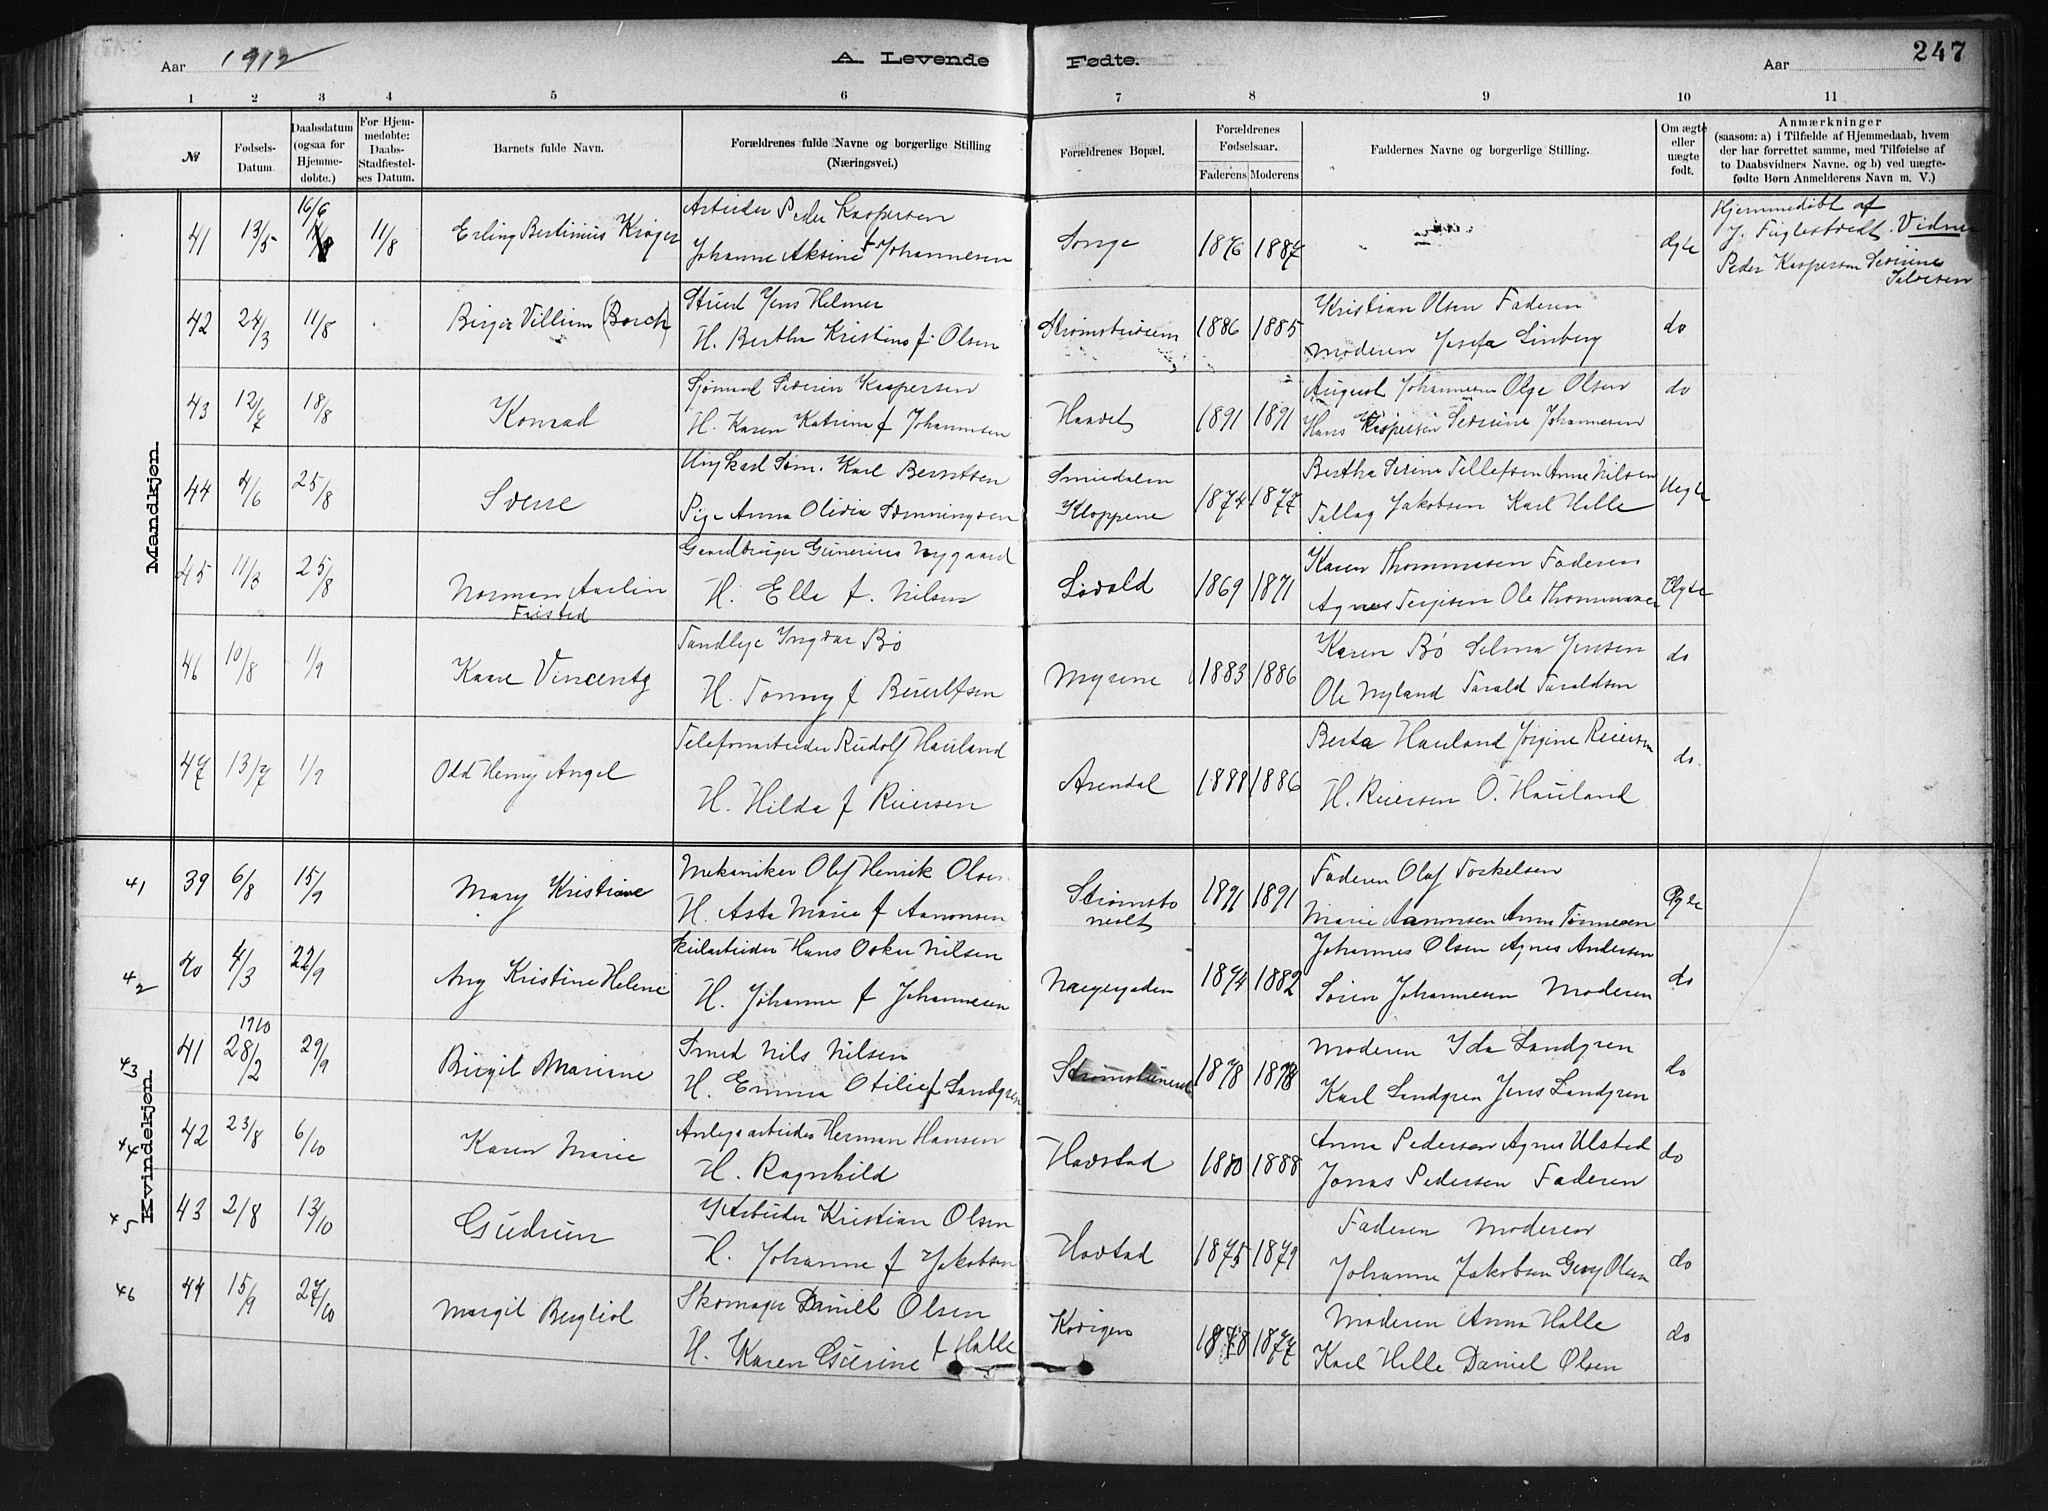 Aar 1912
A. Levende Fødte.
Aar
247
1 2 3 4 5 6 7 8 9 10 11
№
Fødsels-Datum.
Daabsdatum (ogsaa for Hjemme-døbte.)
For Hjem-medøbte: Daabs-Stadfæstel-ses Datum.
Barnets fulde Navn.
Forældrenes fulde Navne og borgerlige Stilling (Næringsvei.)
Forældrenes Bopæl.
Forældrenes Fødselsaar.
Faderens Moderens
Faddernes Navne og borgerlige Stilling.
Om ægte eller uægte født.
Anmærkninger
(saasom: a) i Tilfælde af Hjemmedaab, hvem der har forrettet samme, med Tilføielse af to Daabsvidners Navne. og b) ved uægte-fødte Børn Anmelderens Navn m. V.)
Mandkjøn.
41 13/5 16/6 11/8 Erling Bertinius Krøger
Arbeider Peder Kaspersen
Johanne Aksine f Johannesen
Songe 1876 1887 Ægte
Hjemmedøbt af
J. Fuglestvedt. Vidner
Peder Kaspersen Severine
Salvesen
42 24/3 11/8 Birger Villium (Borch)
Stuerd Jens Helmer
H. Bertha Kristine f. Olsen
1886 1885
Kristian Olsen Faderen
Moderen Josefa Linberg
do
43 12/7 18/8 Konrad
Sjømand Severin Kaspersen
H. Karen Katrine f Johannesen
Haavet 1891 1891
August Johannesen Olge Olsen
Hans Kaspersen Severine Johannesen
do
44 4/6 25/8 Sverre
Ungkarl Søm. Karl Berntsen
Pige Anna Olivia
Smiedalen
Kloppene
1874 1877
Bertha Serine Tellefsen Anne Nilsen
Tallag Jakobsen Karl Halle
Uegte
45 11/3 25/8 Norman Aarlin
Fristed
Gaardbruger Gunerius Nygaard
H. Elle f. Nilsen
Løvold 1869 1871
Karen Thommesen Faderen
Agnes Terjesen Ole Thommesen
Ægte
46 10/8 1/9 Kaare Vincentz
Tandlege Yngvar Bø
H. Tonny f
Myrene 1883 1886
Karen Bø Selma Jensen
Ole Nyland Tarald Taraldsen
do
47 13/7 1/9 Odd Henry Angel
Telefonarbeider Rudolf Hauland
H. Hilda f Reiersen
Arendal 1888 1886
Berta Hauland Jørgine Reiersen
H. Reiersen O. Hauland
do
Kvindekjøn.
41 39 6/8 15/9 Mary Kristiane
Mekaniker Olaf Henrik Olsen
H. Asta Marie f Aanonsen
1891 1891
Faderen Olaf Torkelsen
Marie Aanonsen Anna Tønnesen
Ægte
42 40 4/3 22/9 Any Kristine Helene
Hans Osker Nilsen
H. Johanne f Johannesen
1874 1882
Johannes Olsen Agnes Andersen
Søren Johannesen Moderen
do
43 41 1910 28/2 29/9 Birgit Mariane
Smed Nils Nilsen
H. Emma Otilie f Landgren
1878 1878
Moderen Ida Landgren
Karl Landgren Jens Landgren
do
44 42 23/8 6/10 Karen Marie
Anlegsarbeider Herman Hansen
H. Ragnhild
Havstad 1880 1888
Anna Pedersen Agnes Ulstad
Jonas Pedersen Faderen
do
45 43 2/8 13/10 Gudrun
Arbeider Kristian Olsen
H. Johanne f Jakobsen
Havstad 1875 1879
Faderen Moderen
Johanne Jakobsen Georg Olsen
do
46 44 15/9 27/10 Margit Bergliot
Skomager Daniel Olsen
H. Karen Gurine f Halle
1878 1877
Moderen Anna Halle
Karl Helle Daniel Olsen
do